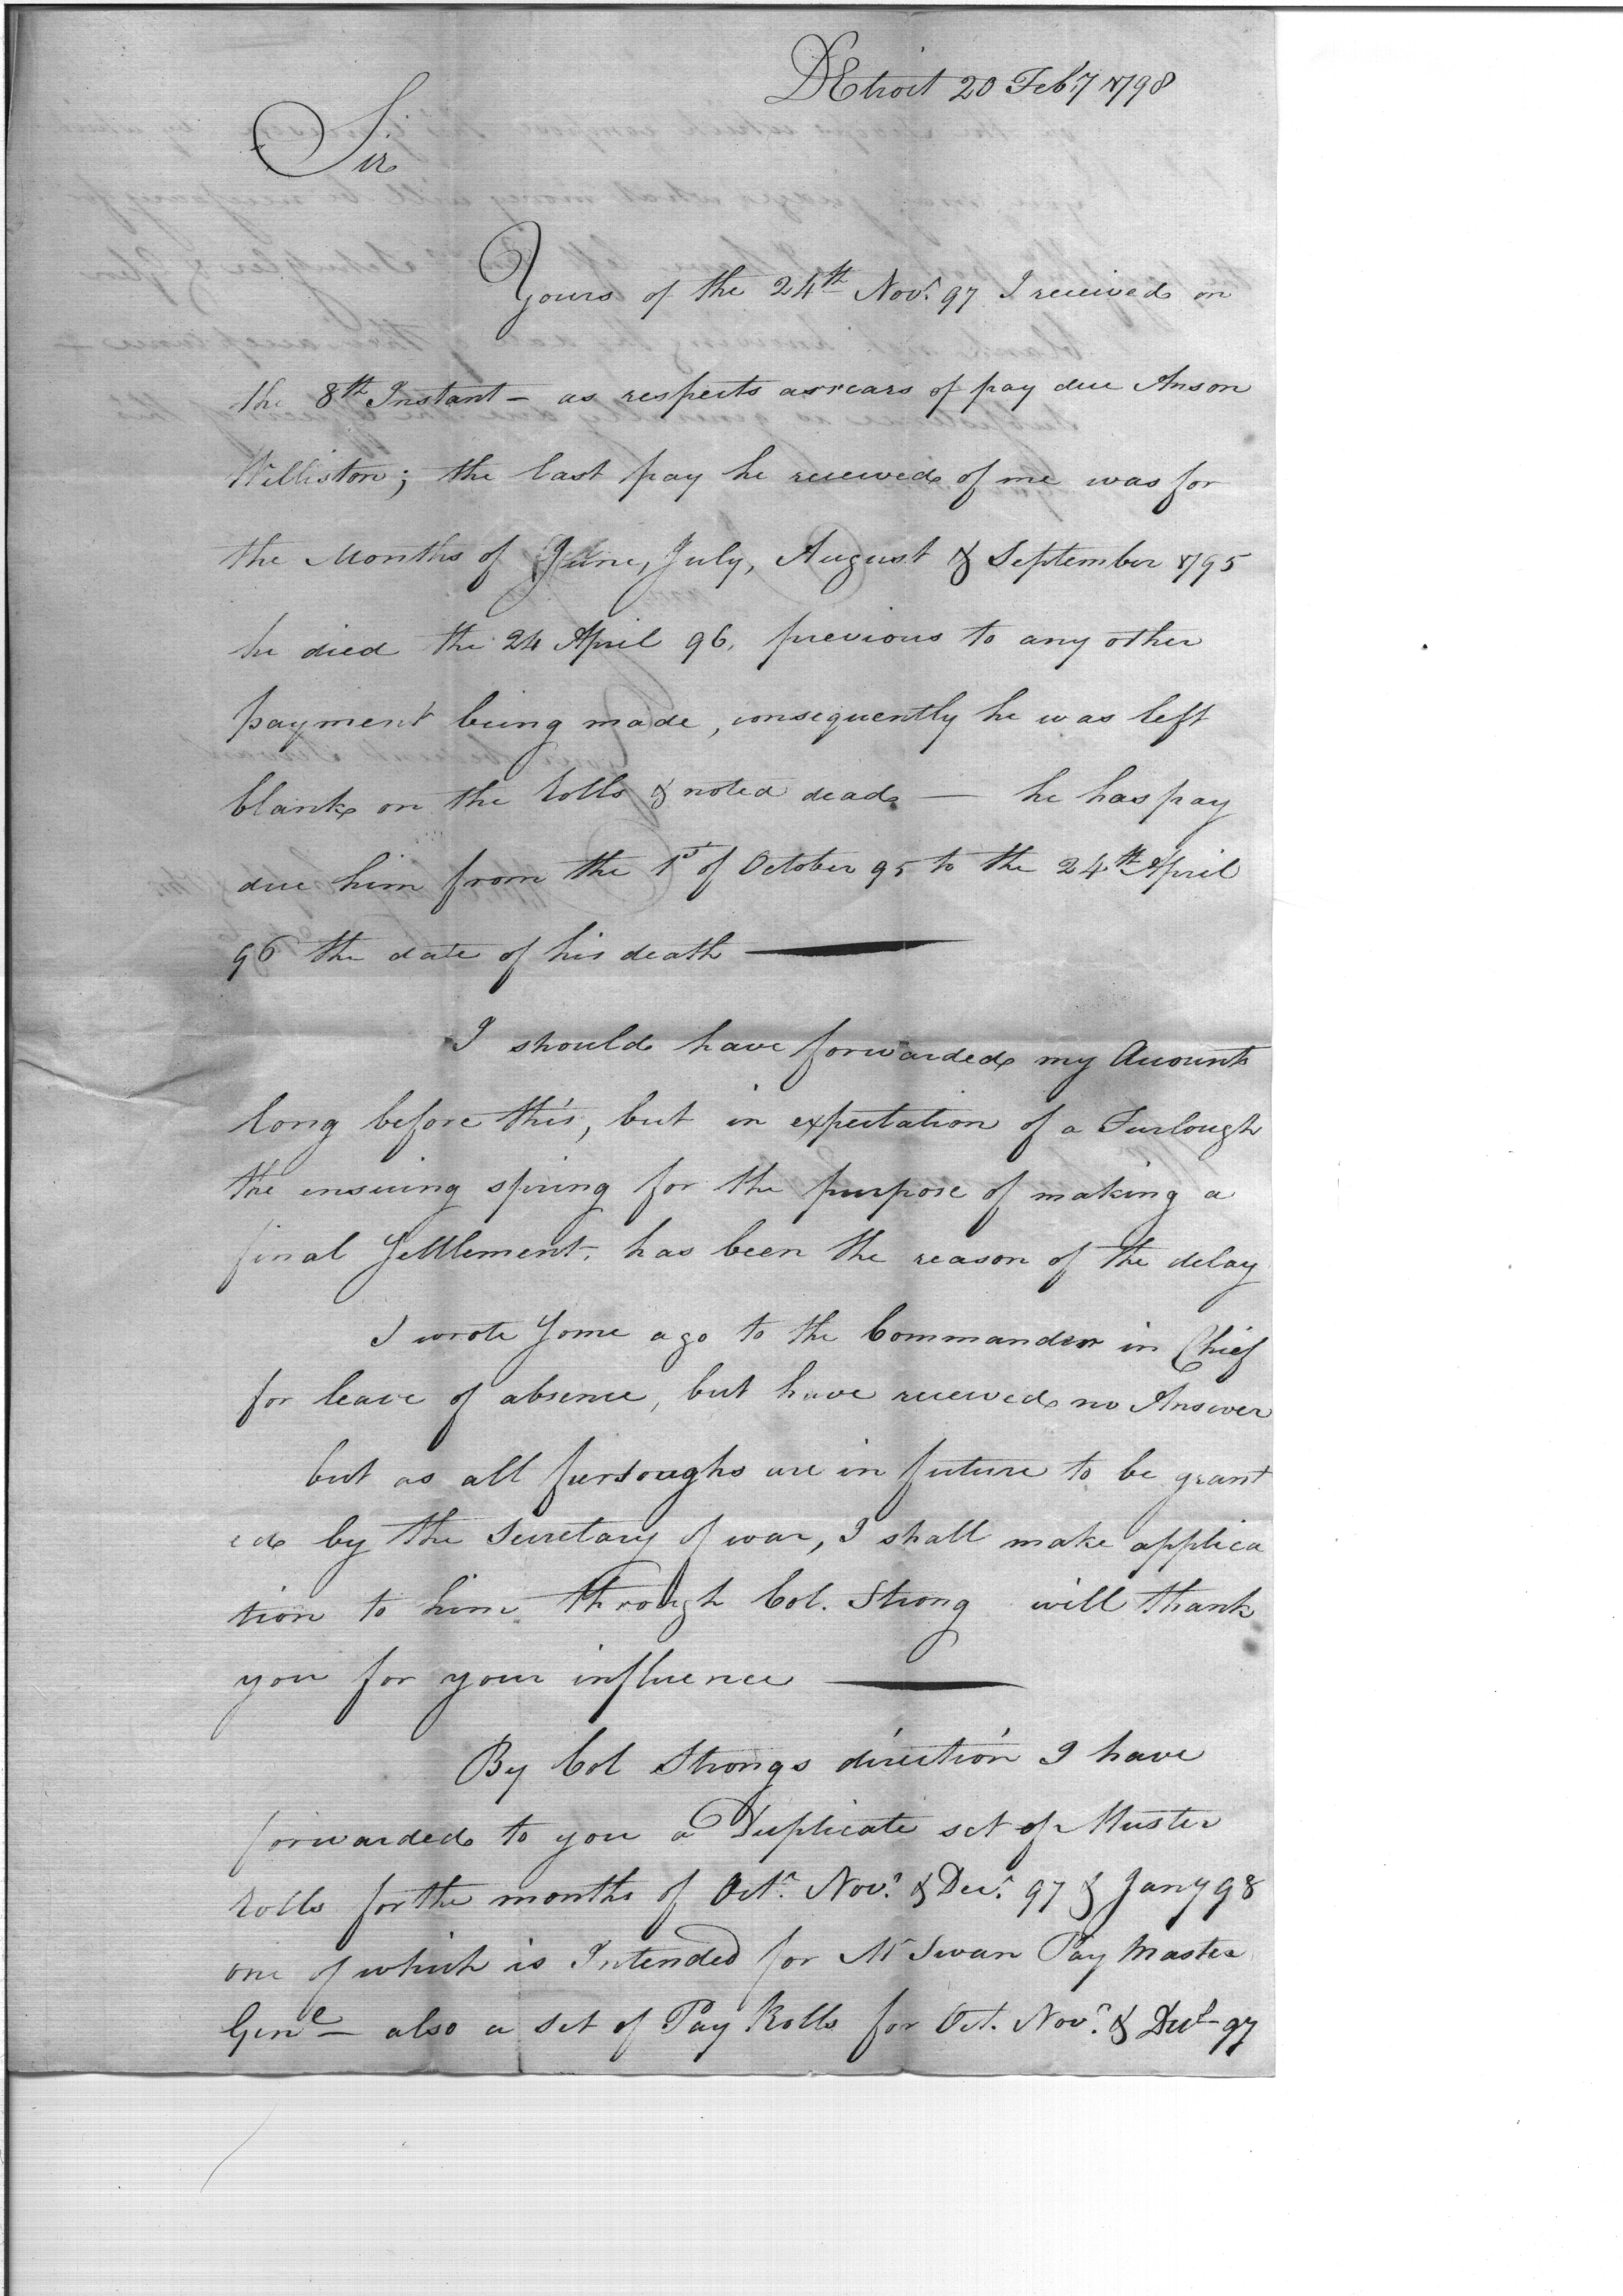 Detroit 20 Feby 1798
Sir
Yours of the 24th Novr. 97 I received on
the 8th Instant – as respects arrears of pay due Anson
Williston; the last pay he received of me was for
the Months of June, July, August & September 1795
he died the 24 April 96, previous to any other
payment being made, consequently he was left
blank on the Rolls & noted dead — he has pay
due him from the 1st of October 95 to the 24th April
96 the date of his death —
I should have forwarded my Accounts
long before this, but in expectation of a Furlough
the ensuing spring for the purpose of making a
final Settlement, has been the reason of the delay
I wrote Some ago to the Commander in Chief
for leave of absence, but have received no Answer
but as all furloughs are in future to be grant
ed by the Secretary of war, I shall make applica
tion to him through Col. Strong will thank
you for your influence —
By Col Strongs direction I have
forwarded to you a Duplicate set of Muster
Rolls for the months of Octr. Novr. & Decr. 97 & Jany 98
one of which is Intended for Mr Swan Pay Master
Genl – also a set of Pay Rolls for Oct. Novr. & Decr 97